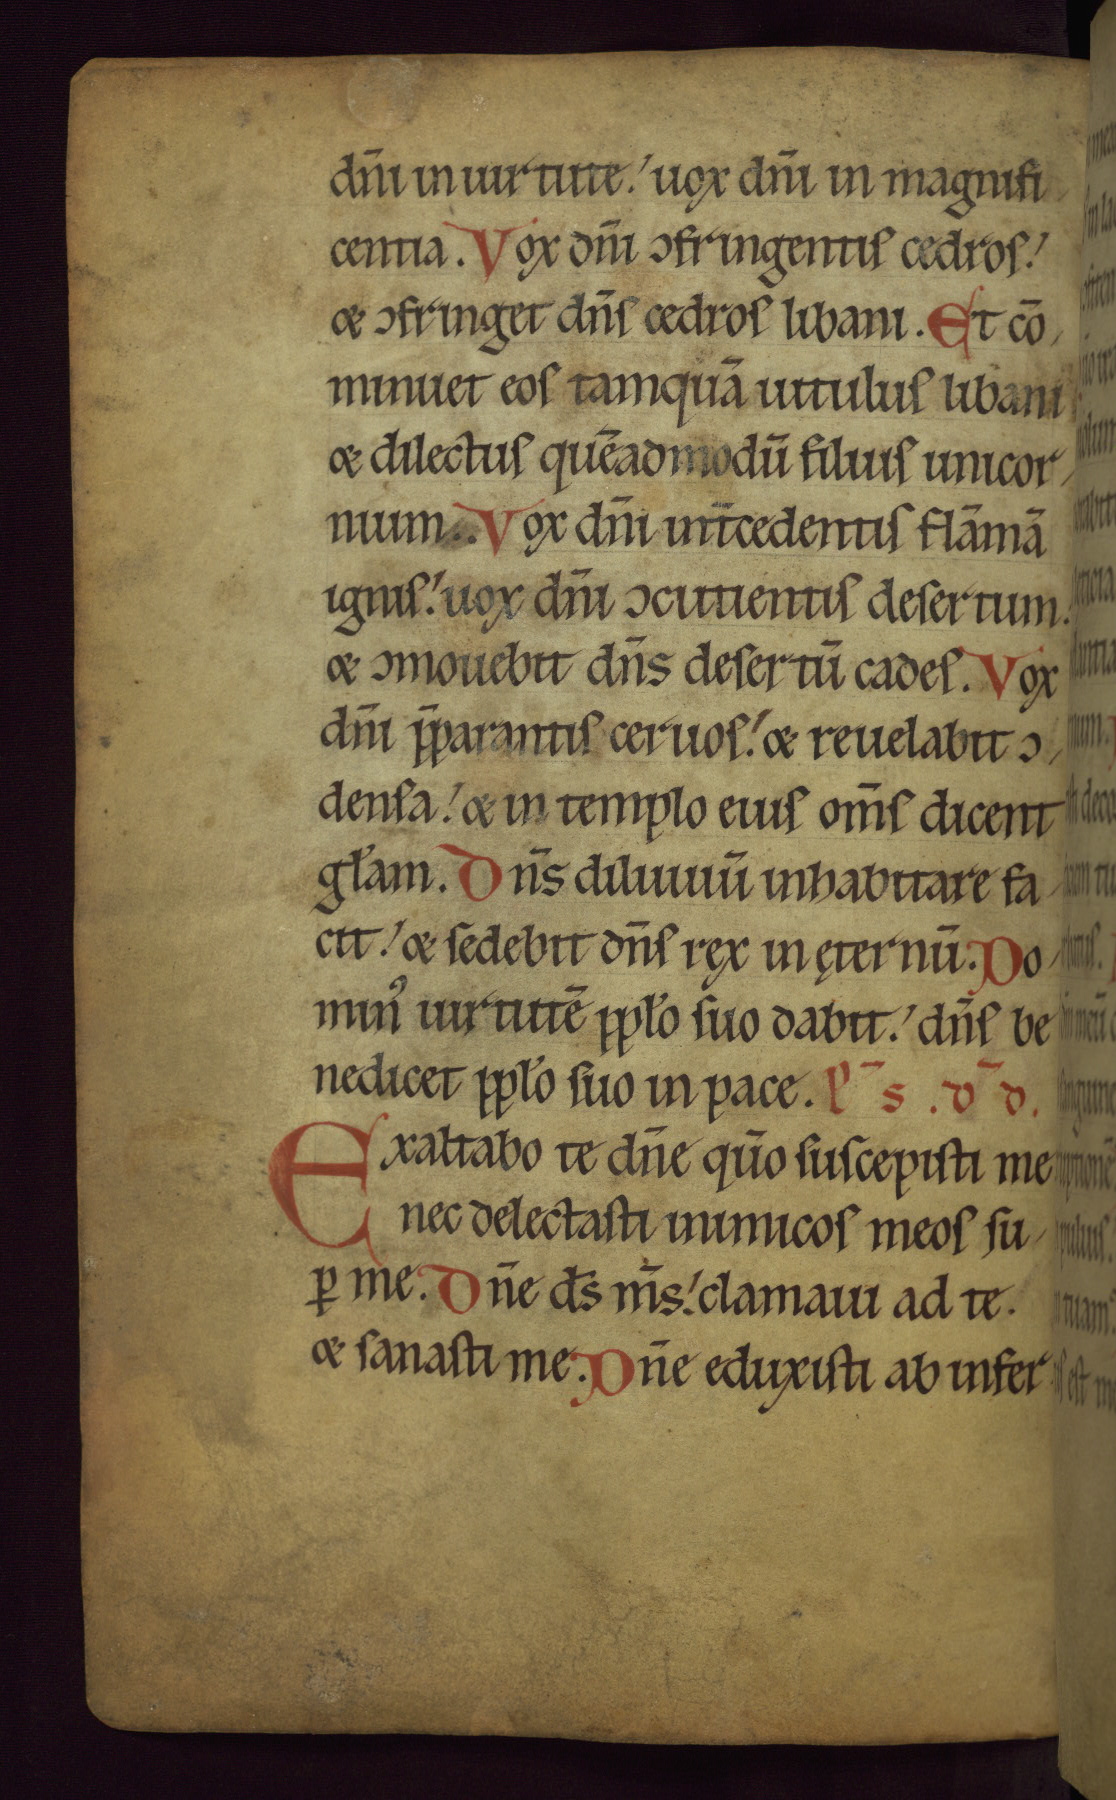 dn̄i in uirtute! uox dn̄i in magnifi
centia. Vox dn̄i ↄfringentis cedros!
& ↄfringet dn̄s cedros libani. Et cō
minuet eos tamquā uitulus libani
& dilectus quēadmodū filius unicor
nium. Vox dn̄i int̄cedentis flāmā
ignis! uox dn̄i ↄcutientis desertum.
& ↄmouebit dn̄s desertū cades. Vox
dn̄i p̄parantis ceruos! & reuelabit ↄ
densa! & in templo eius om̄s dicent
gl̄am. Dn̄s diluuiū inhabitare fa
cit! & sedebit dn̄s ręx in ęternū. Do
minꝰ uirtutē ppl̄o suo dabit! dn̄s be
nedicet ppl̄o suo in pace. P̄s. D̄D.
Exaltabo te dn̄e qūo suscepisti me
nec delectasti inimicos meos su
ꝑ me. Dn̄e ds̄ m̄s! clamaui ad te.
& sanasti me. Dn̄e eduxisti ab infer